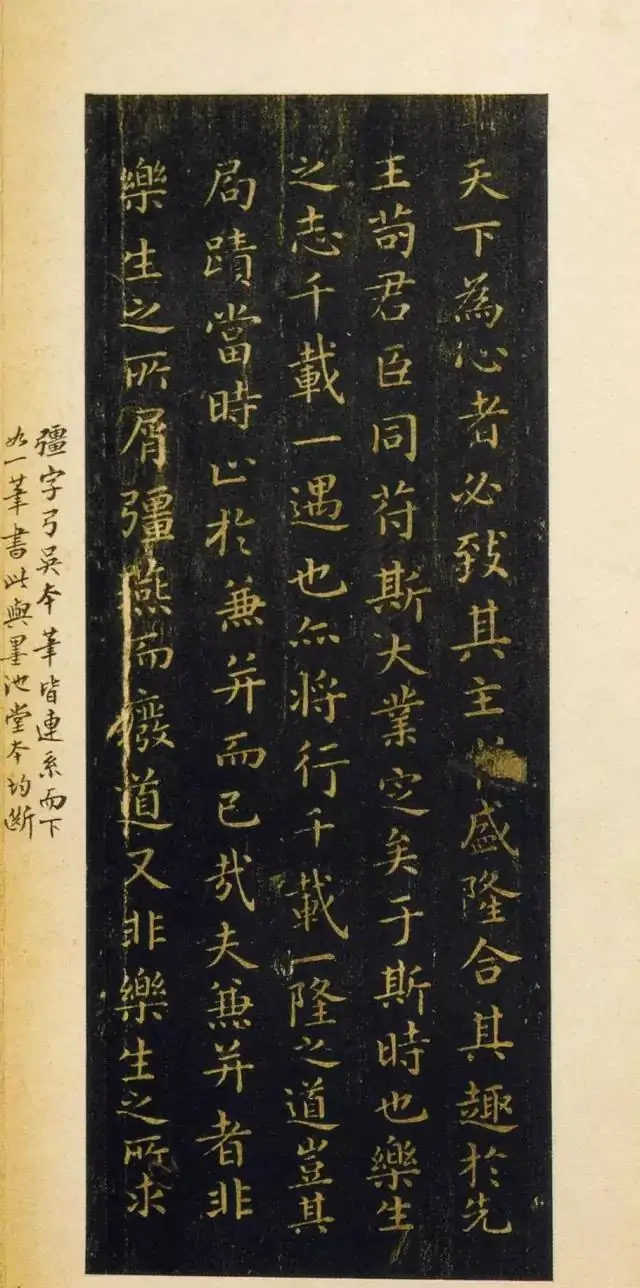 天下為心者必致其主於盛隆合其趣於先
王苟君臣同苻斯大業定矣于斯時也樂生
之志千載一遇也亦將行千載一隆之道豈其
局蹟當時止於兼并而已哉夫兼并者非
樂生之所屑彊燕而廢道又非樂生之所求
彊字弓吴本筆皆連系而下
如一筆書此與墨池堂本均斷